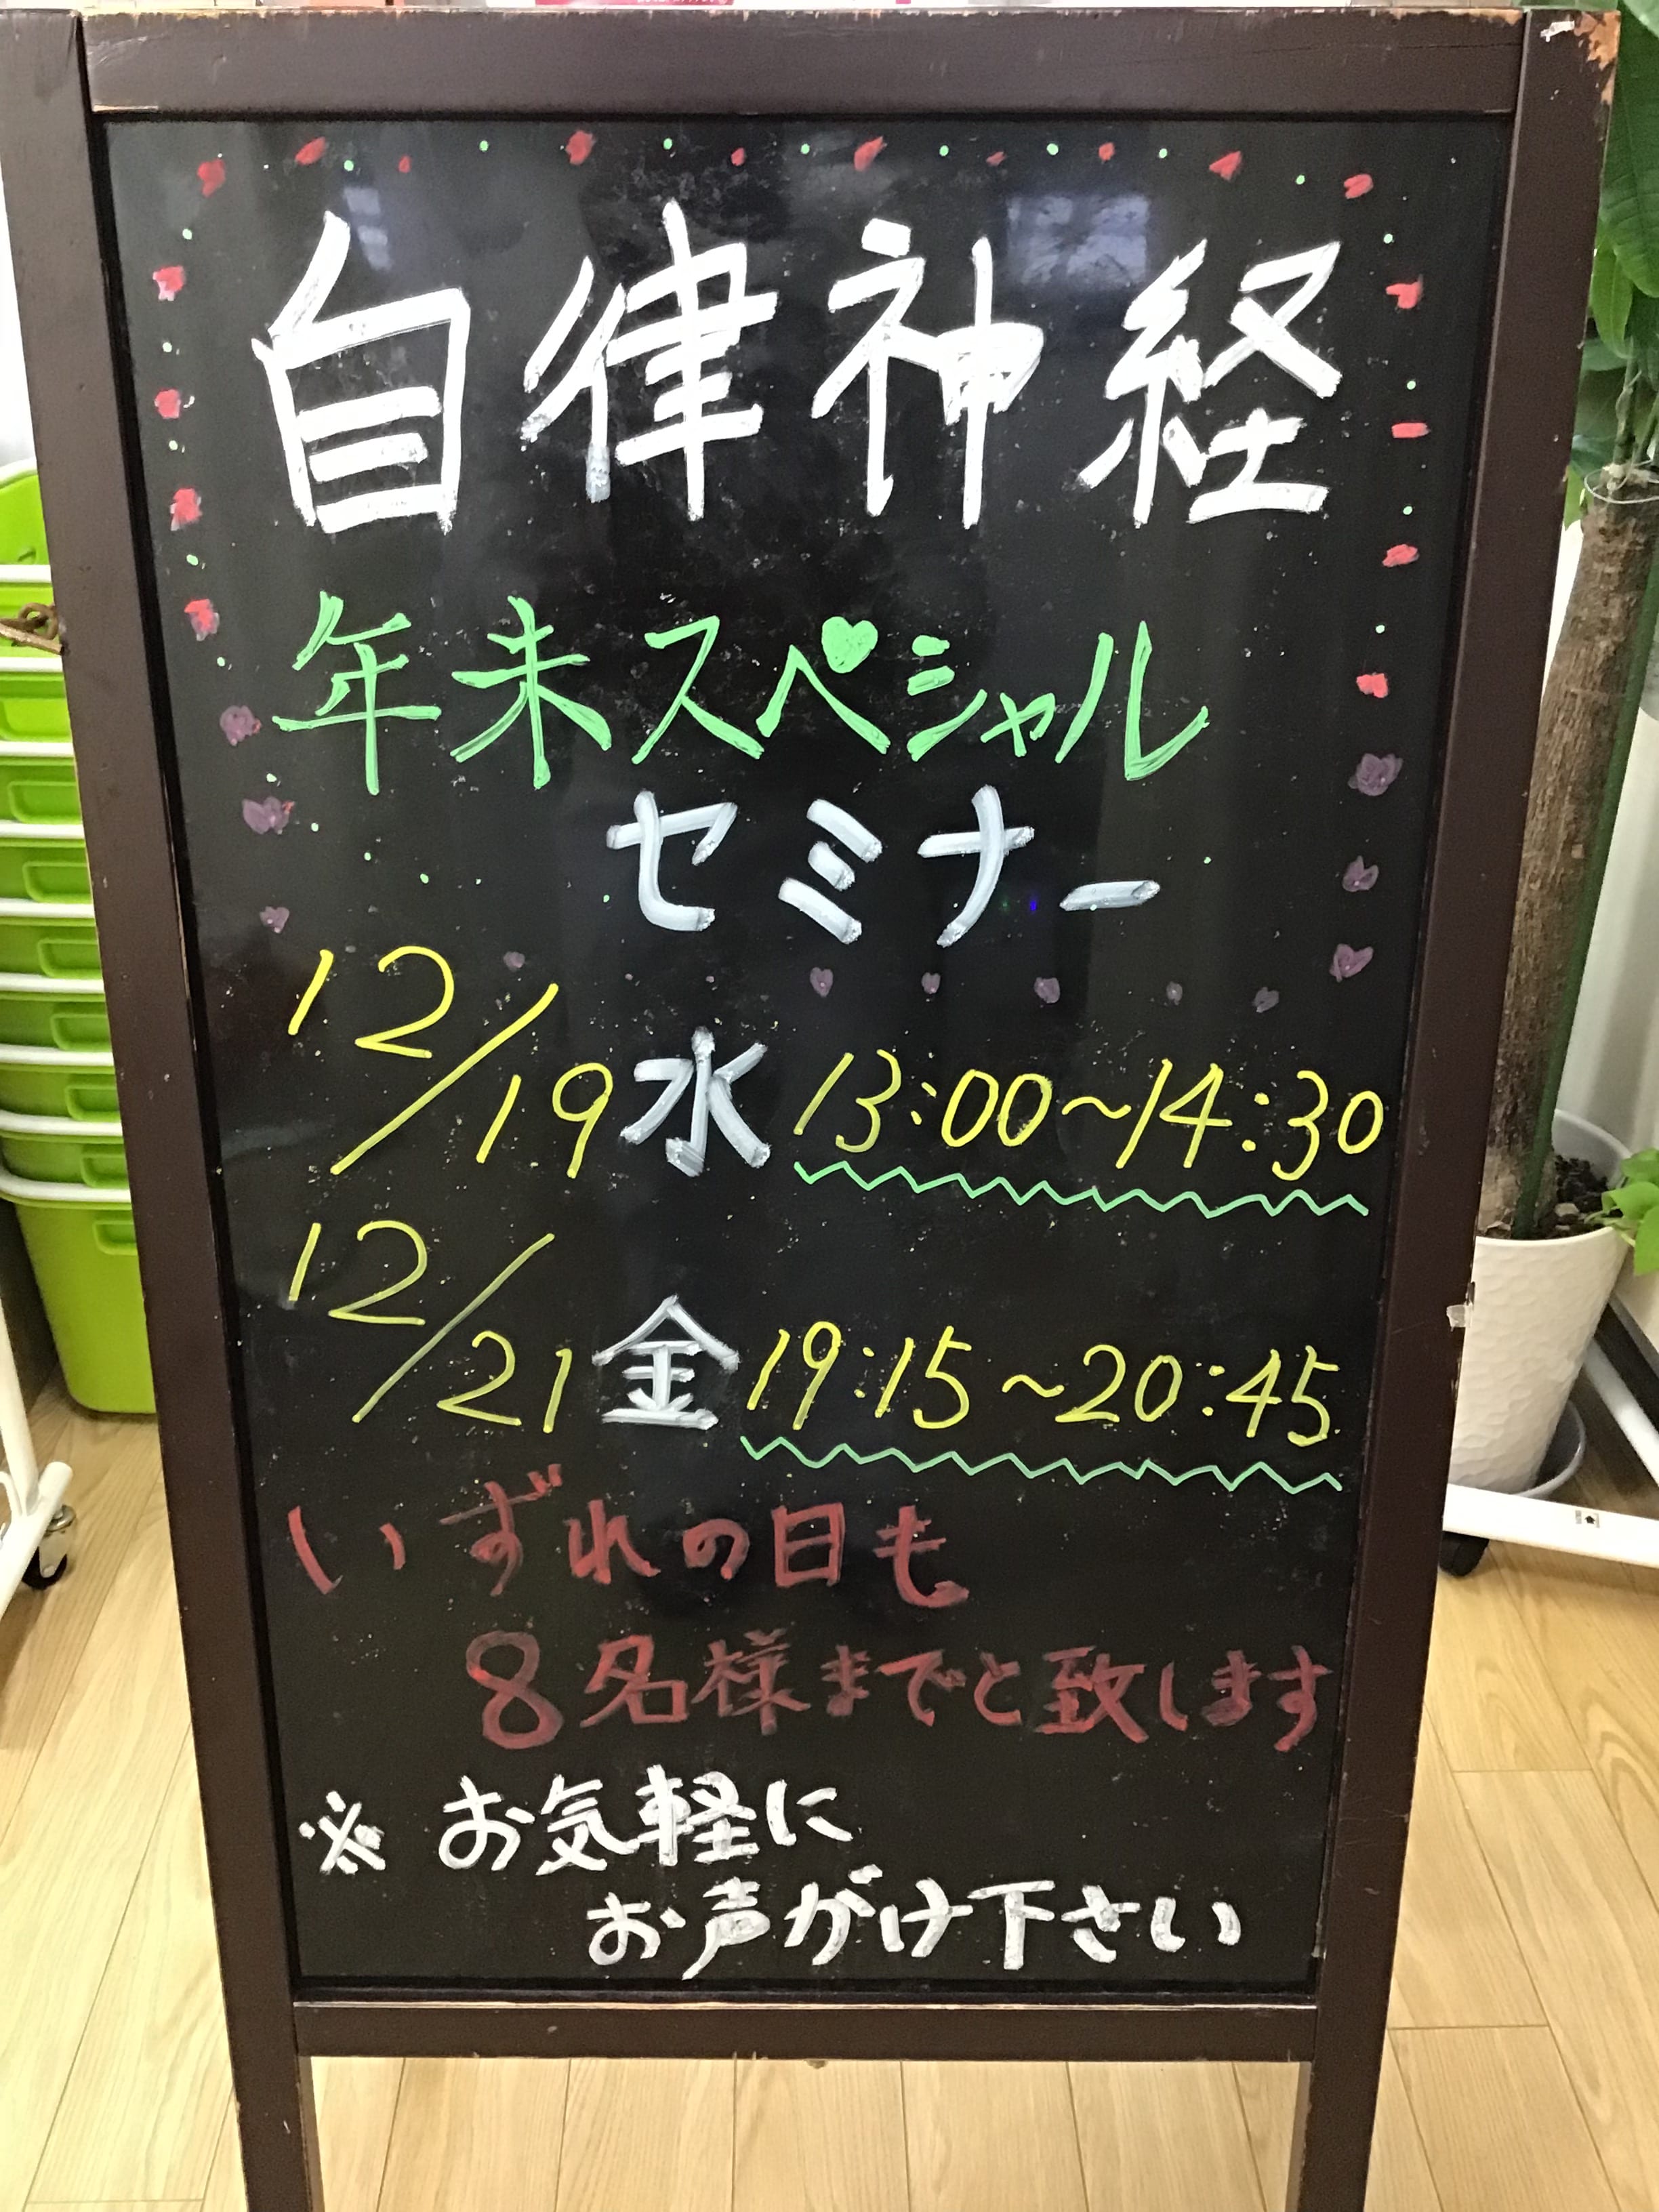 自律神経
年末スペシャル
セミナー
12/19 水 13:00~14:30
12/21 金 19:15~20:45
いずれの日も
8名様までと致します
※ お気軽に
お声がけ下さい